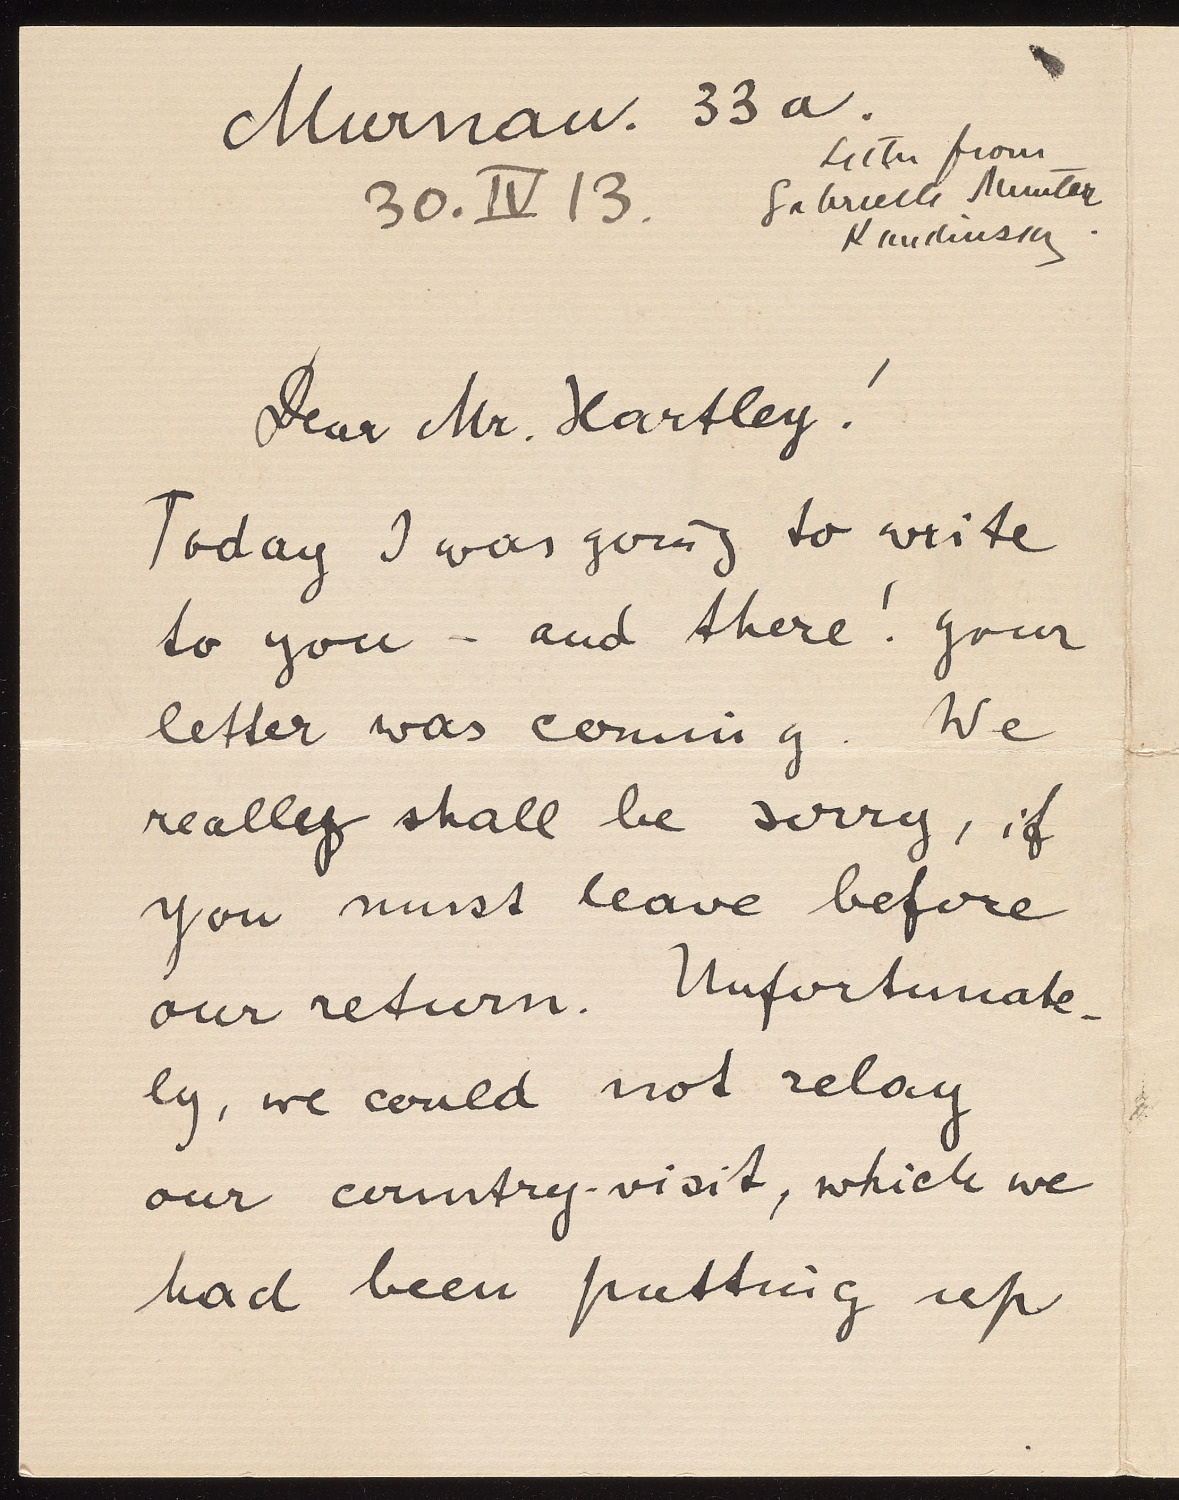 Murnau. 33 a.
30. IV 13.
Letter from
Gabrielle Munter
Kandinsky.
Dear Mr. Hartley!
Today I was going to write
to you - and there! your
letter was coming. We
really shall be sorry, if
you must leave before
our return. Unfortunate-
ly, we could not relay
our country-visit, which we
had been putting up